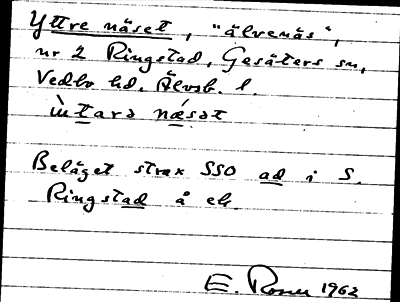 Yttre näset, "älvenäs",
nr 2 Ringstad, Gesäters sn,
Vedbo hd. Älvsb. l.
ìntarə nǽsət
Beläget strax SSO ad i S.
Ringstad å ek.
E. Rosen 1962